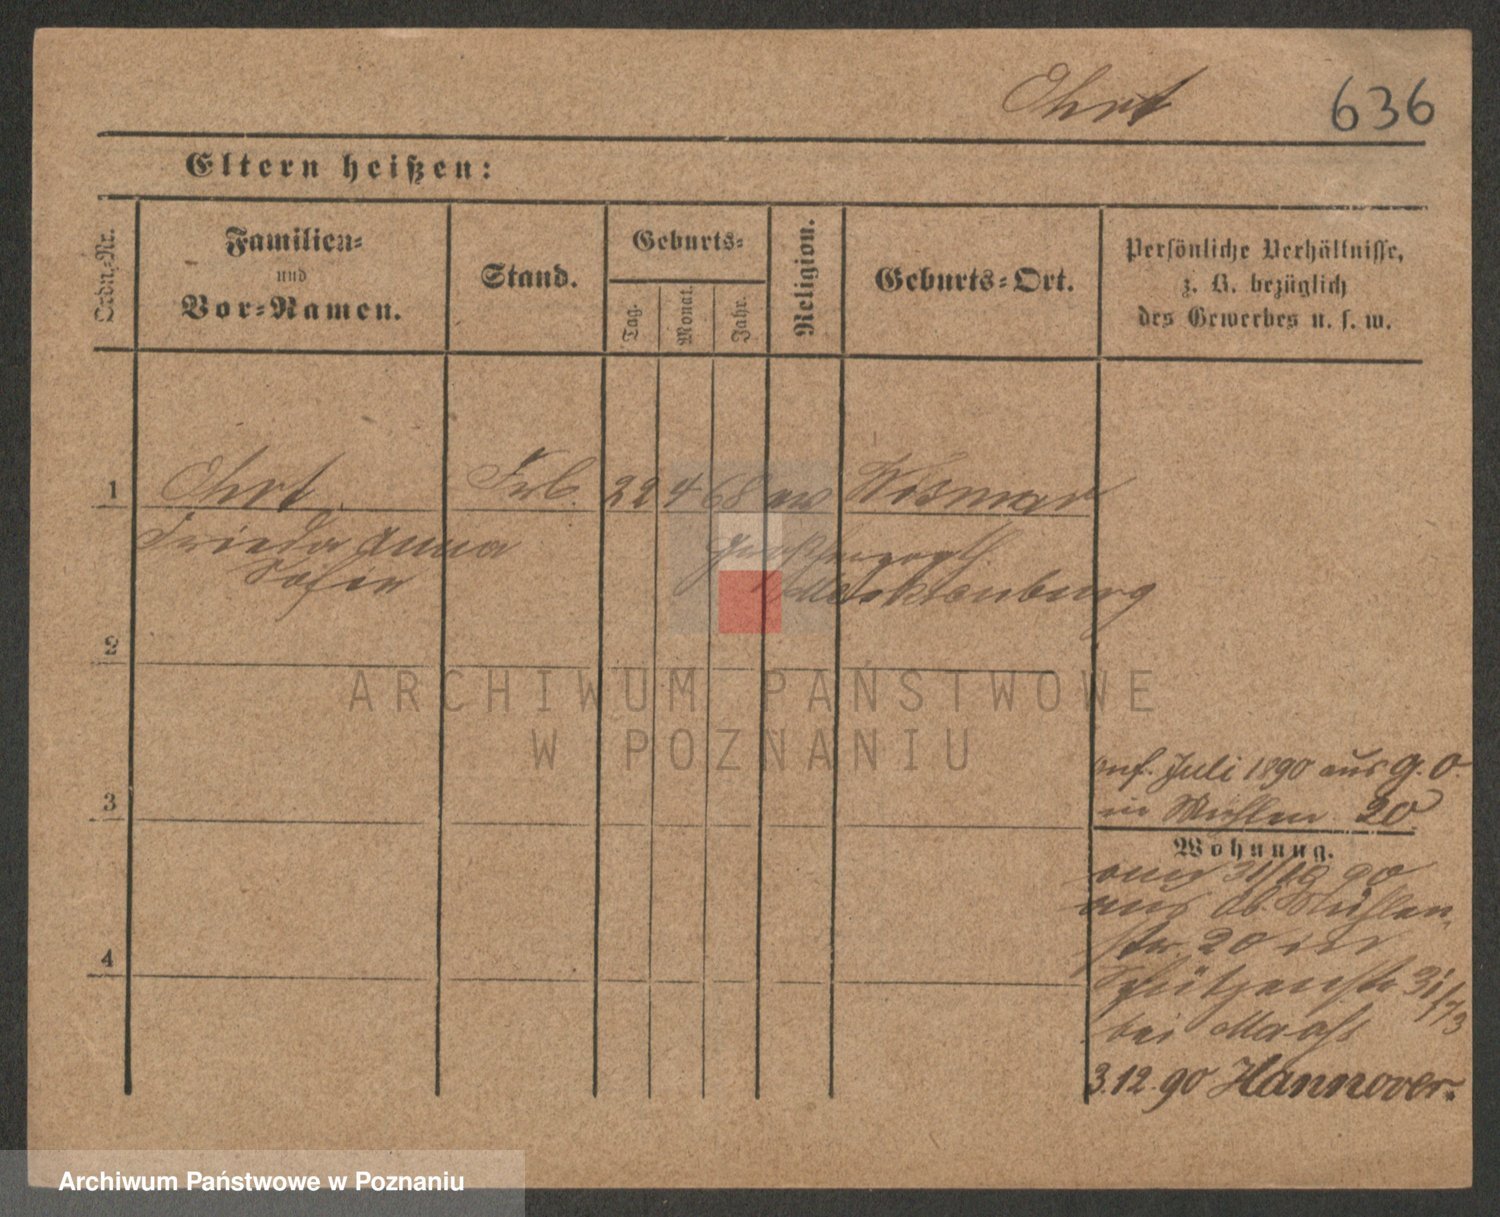 Ohrt 636
Eltern heißen:
Ordn.-Nr.
Familien-
und
Vor-Namen.
Stand.
Geburts-
Tag.
Monat.
Jahr.
Religion.
Geburts-Ort.
Persönliche Verhältnisse,
z. B. bezüglich
des Gewerbes u. s. w.
1 Ohrt Frl. 22 4 68 ev Wismar
Frieda Anna Großherzogth
Sofie Mecklenburg
2
ARCHIWUM PAŃSTWOWE
W POZNANIU
Anf. Juli 1890 aus G. O.
3
in Mühlen 20
Wohnung.
31/10 90
aus Ob. Mühlen
4
str. 20 in
Schützenstr 31
bei
3.12.90 Hannover.
Archiwum Państwowe w Poznaniu